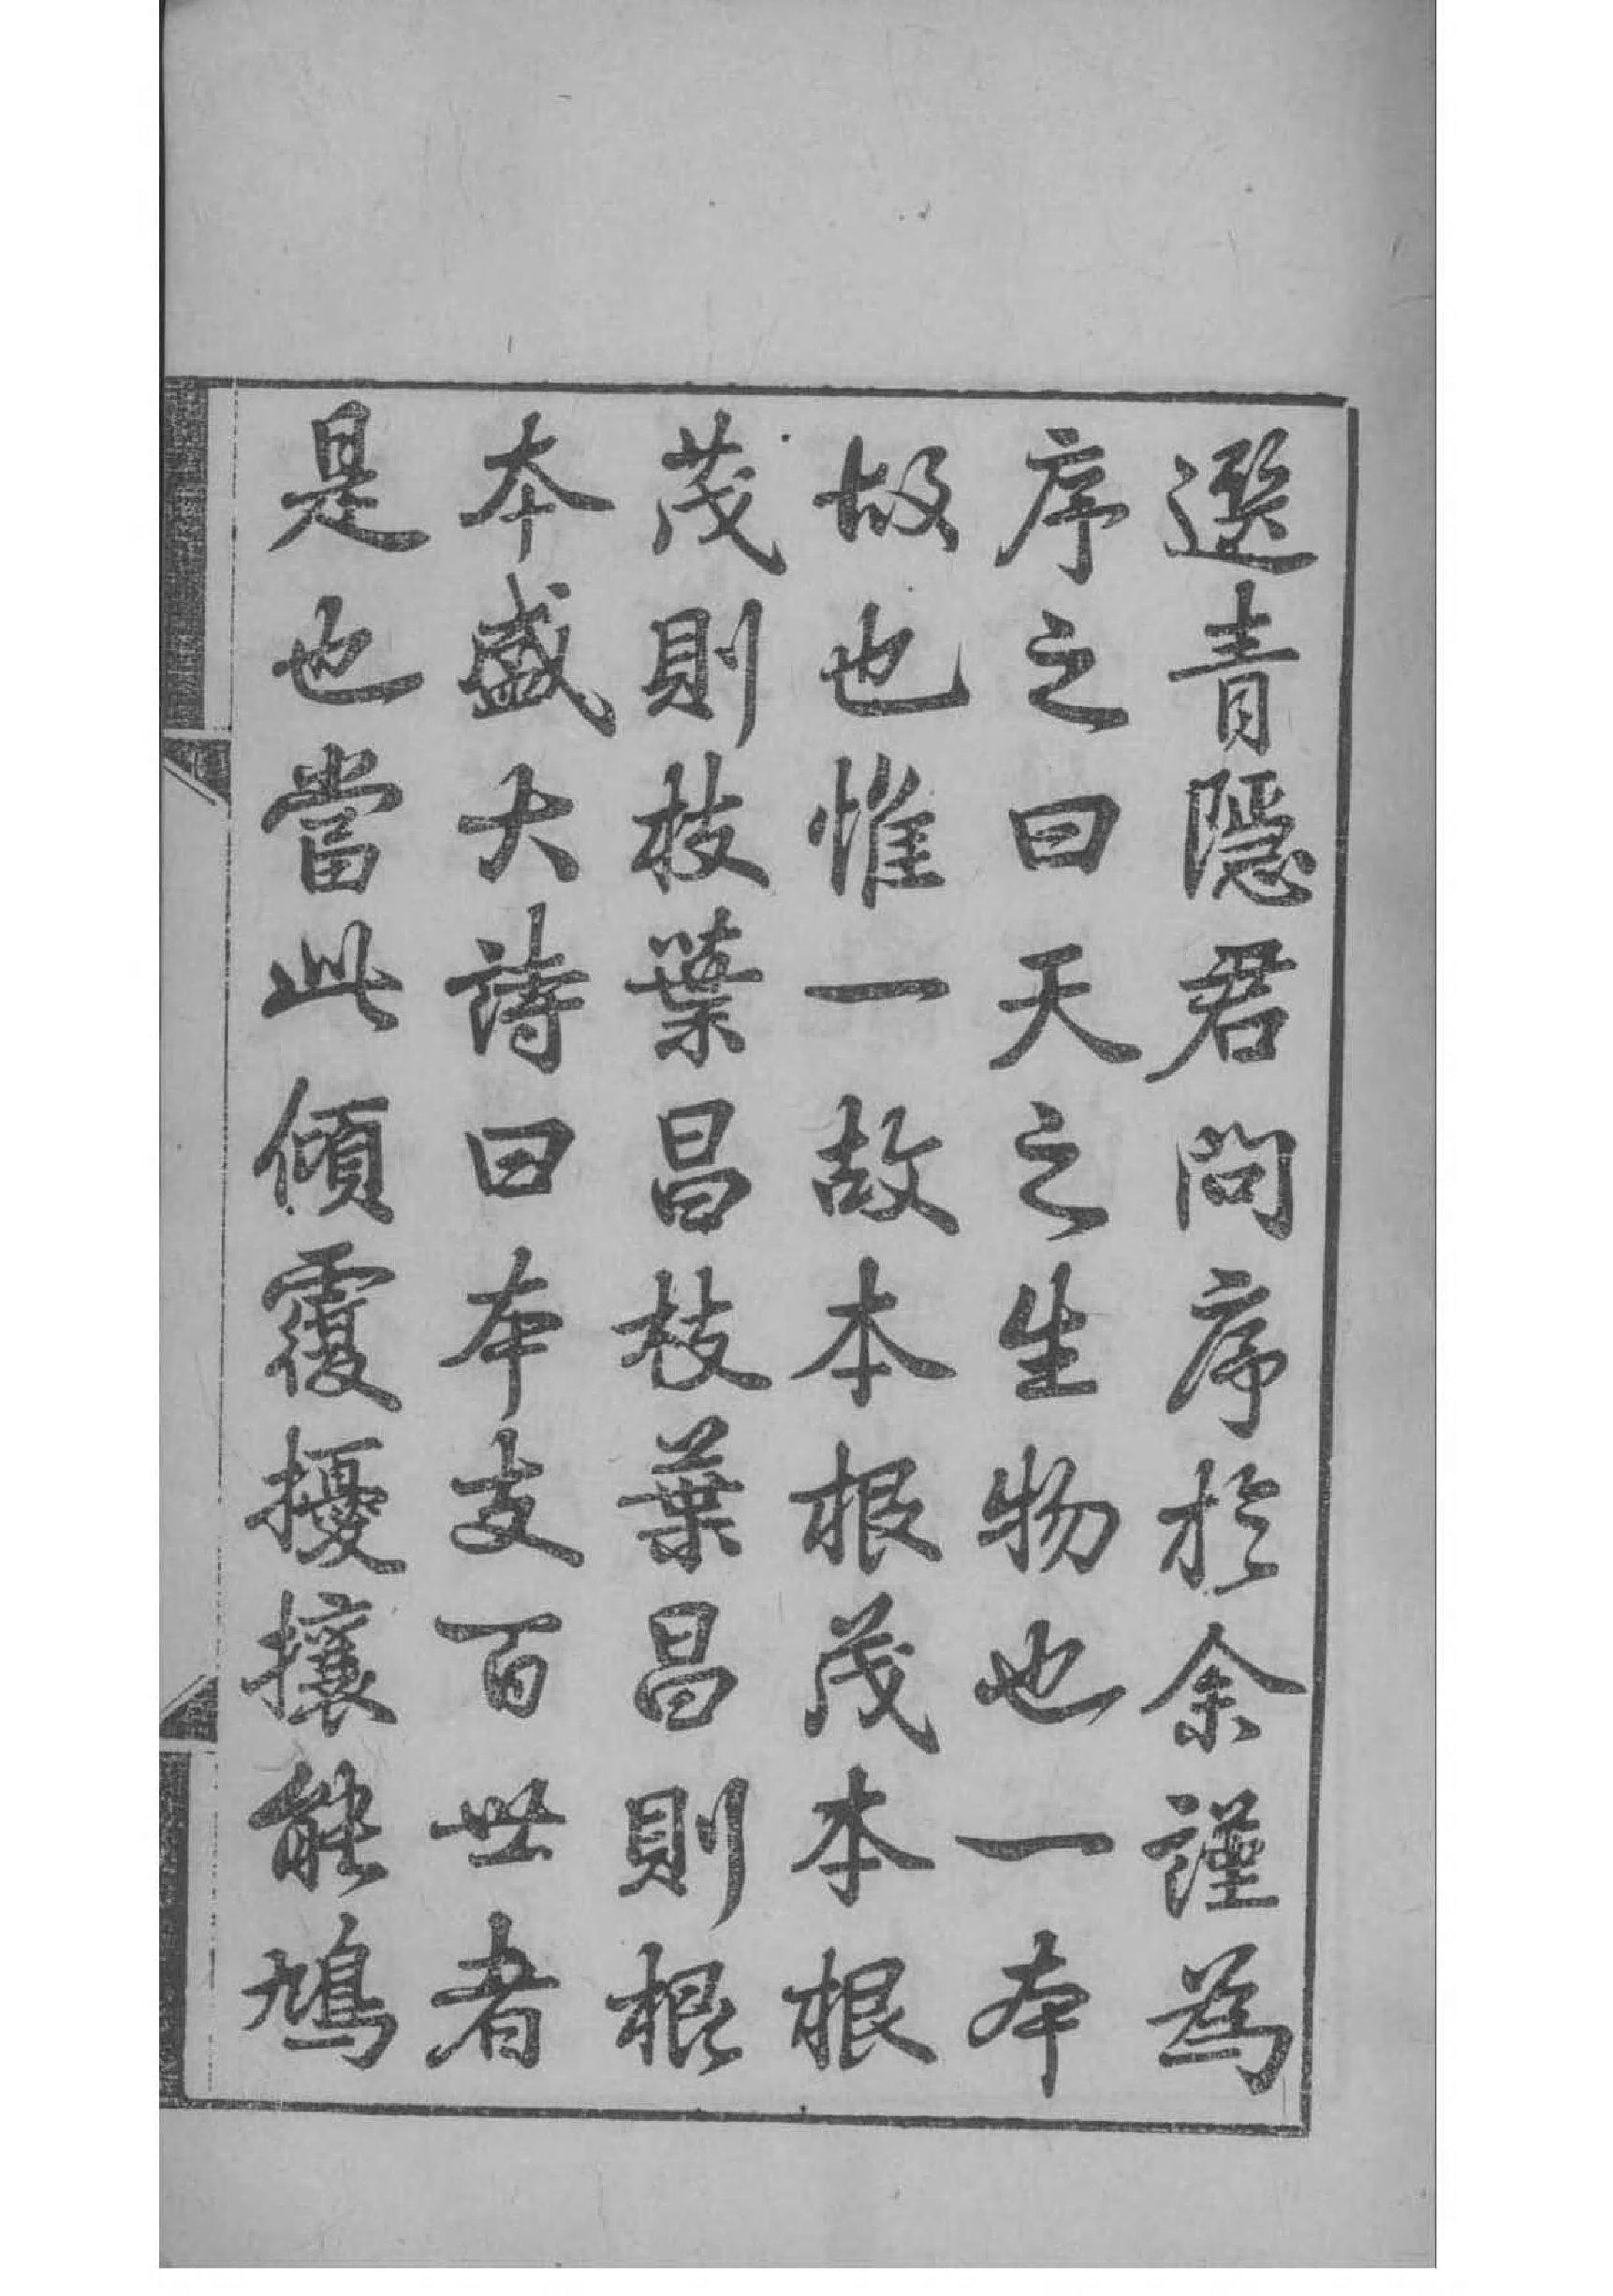 選青隱君問序於余謹為
序之曰天之生物也一本
故也惟一故本根茂本根
茂則枝葉昌枝葉昌則根
本盛大詩曰本支百世者
是也當此傾覆擾攘能鳩